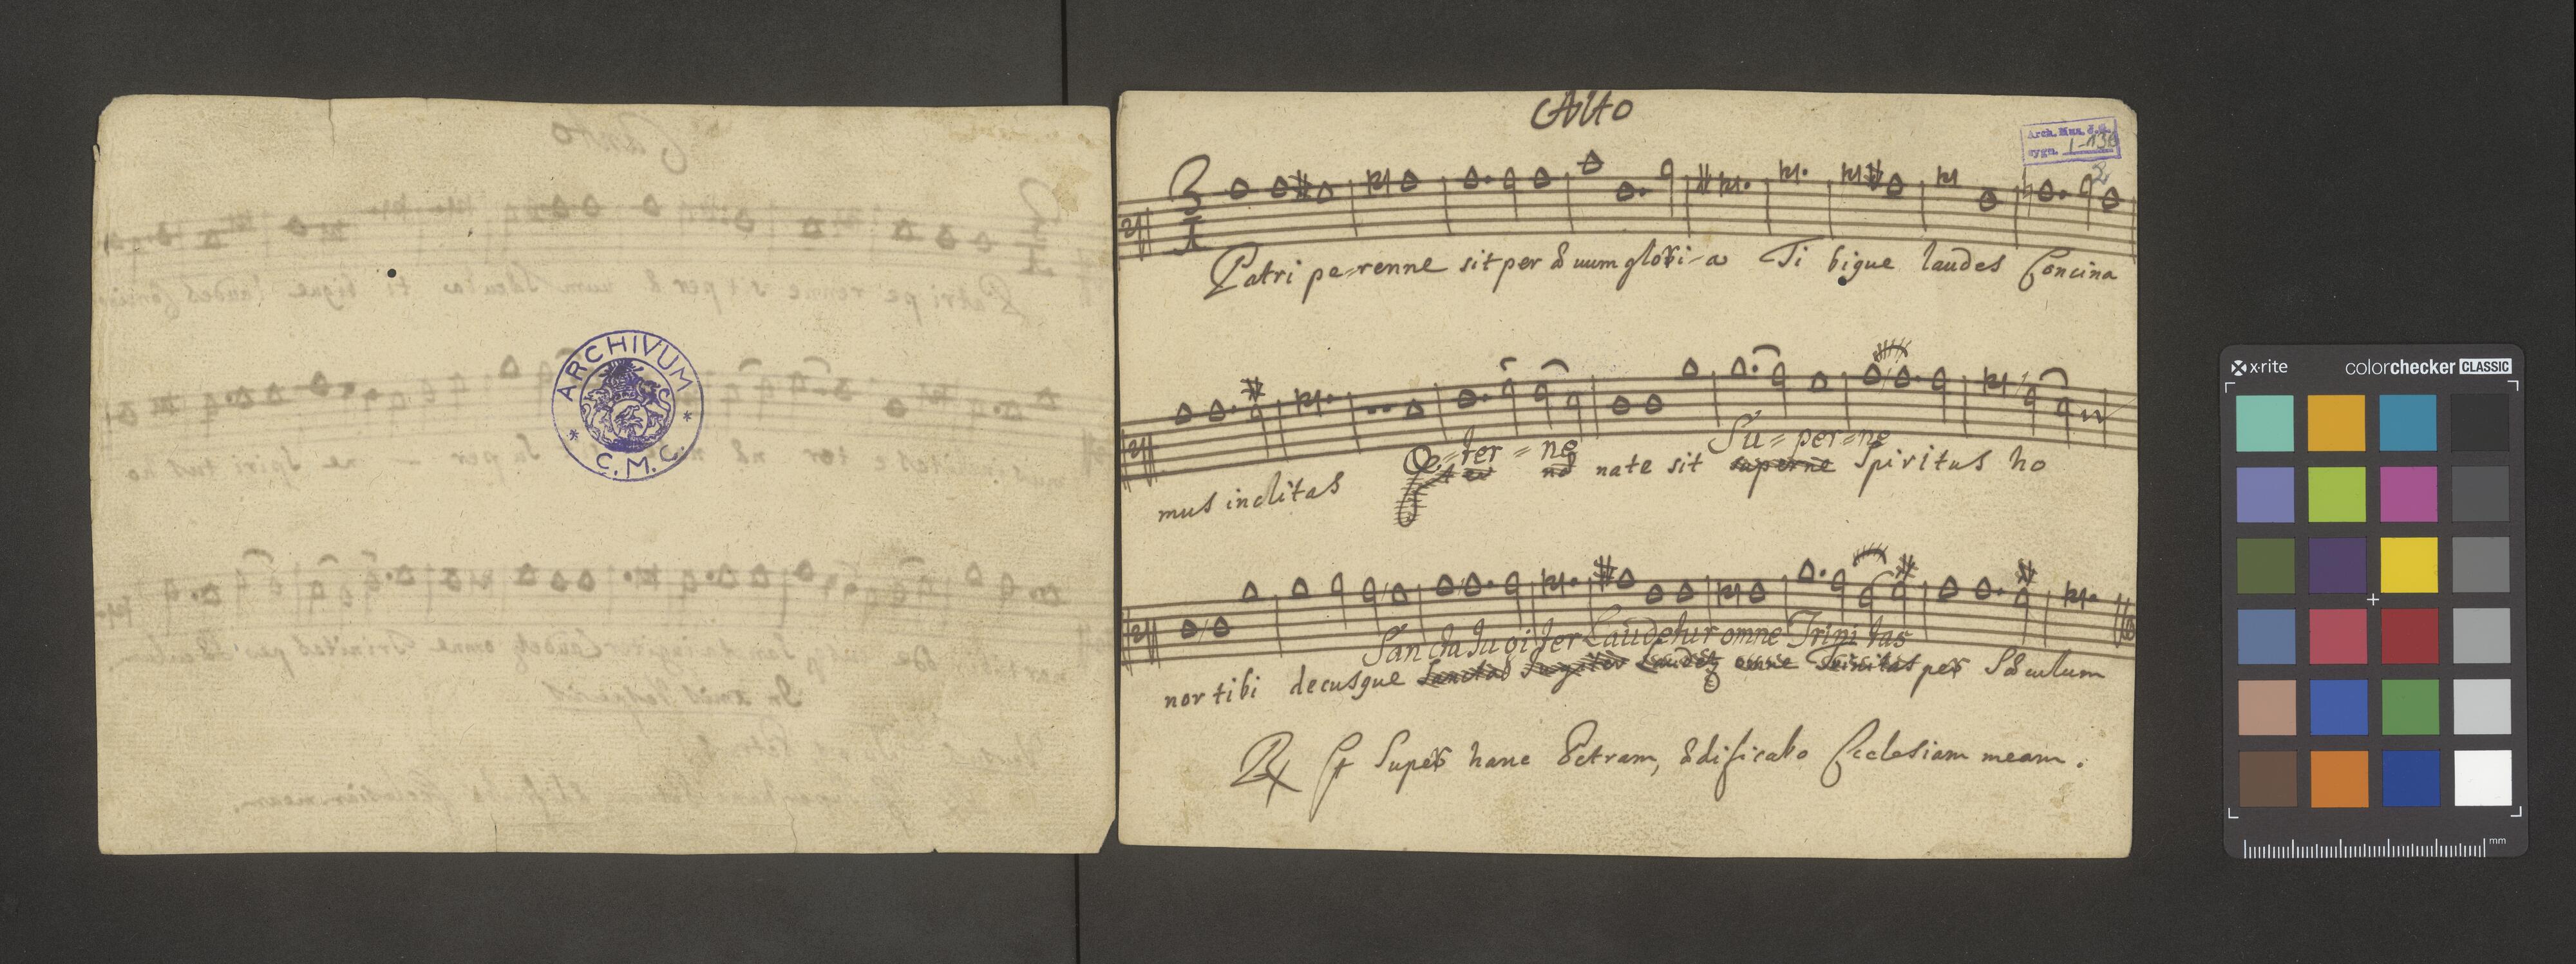 ARCHIVUM
C. M. C.
Alto
Arch. Mus.
sygn. I-130
2
Patri pe-renne sit per æuum glori-a Tibique laudes Concina
Æ=ter=ne Su=per=ne
mus inclitas nate sit superne Spiritus ho
Sancta Jugiter Laudetur omne Trinitas
nor tibi decusque Sancta Jugiter omne Trinitas per Sæculum
Et Super hanc Petram, ædificabo Ecclesiam meam.
x·rite colorchecker CLASSIC
mm